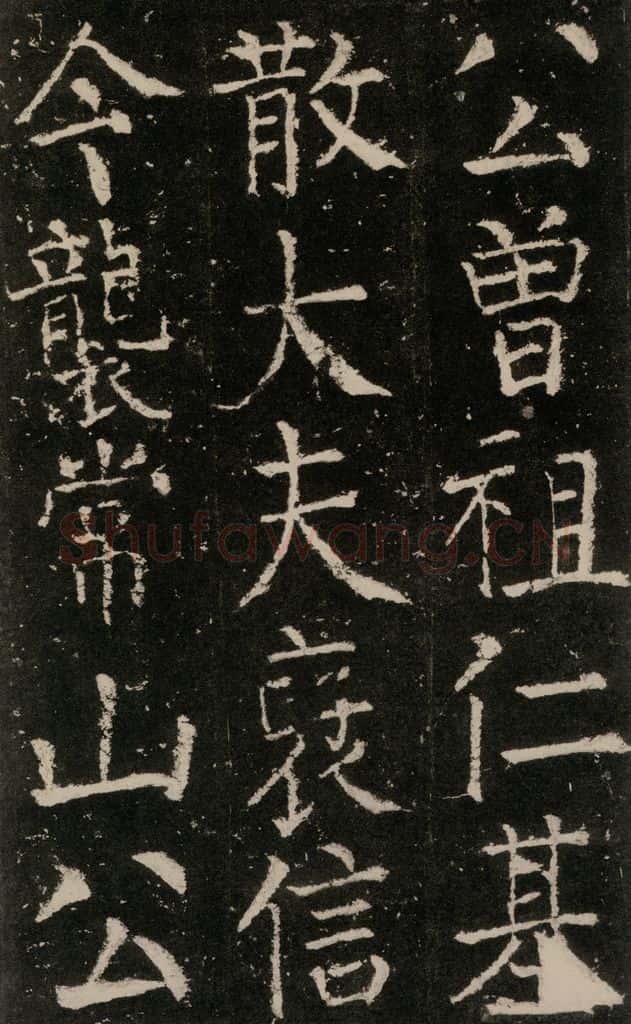 公曾祖仁基
散大夫裦信
令襲常山公
Shufawang.CN